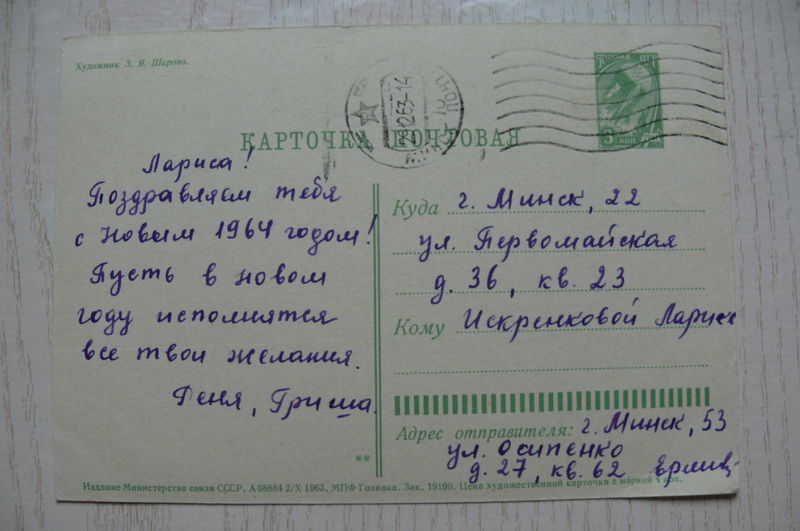 Художник З. Я. Шарова.
12 63-14
КАРТОЧКА ПОЧТОВАЯ
Лариса!
Поздравляем тебя
с Новым 1964 годом!
Пусть в новом
году исполнятся
все твои желания.
Феня, Гриша.
Куда г. Минск, 22
ул. Первомайская
д. 36, кв. 23
Кому Искренковой Ларисе
Адрес отправителя: г. Минск, 53
ул. Осипенко
д. 27, кв. 62
Издание Министерства связи СССР. А 08884 2/X 1963. МПФ Гознака. Зак. 19190. Цена художественной карточки с маркой 4 коп.